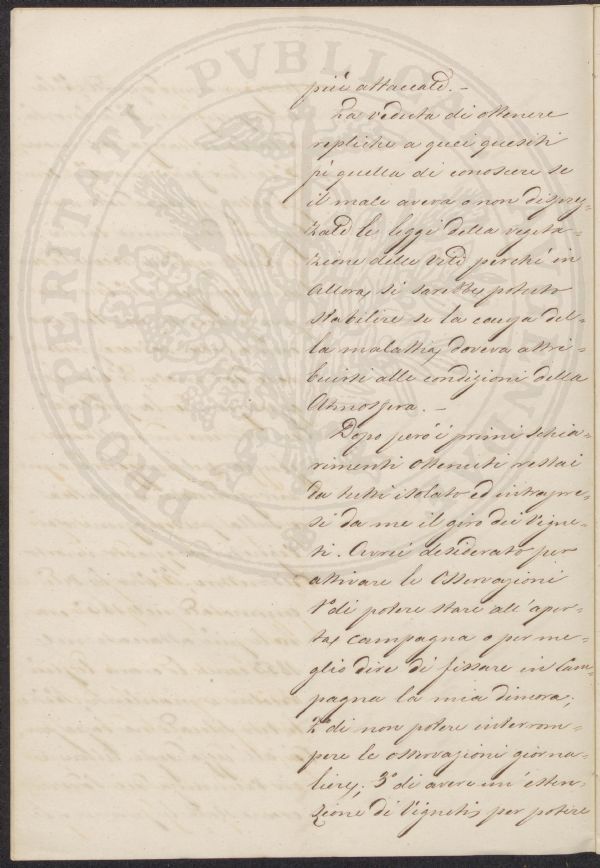 più attaccate. -
La veduta di ottenere
repliche a quei quesiti
fù quella di conoscere se
il male aveva o non disprez-
zate le leggi della vegeta-
zione delle Viti perché in
allora, si sarebbe potuto
stabilire se la causa del-
la malattia, doveva attri-
buirsi alle condizioni della
Atmosfera. -
Dopo però i primi schia-
rimenti ottenuti restai
da tutti isolato ed intrapre-
si da me il giro dei Vigne-
ti. Avrei desiderato per
attivare le Osservazioni
1.° di potere stare all'aper-
ta, campagna o per me-
glio dire di fissare in Cam-
pagna la mia dimora;
2.° di non potere interrom-
pere le osservazioni giorna-
liere; 3.° di avere un'esten-
zione di Vigneti, per potere
PROSPERITATI PVBLICAE